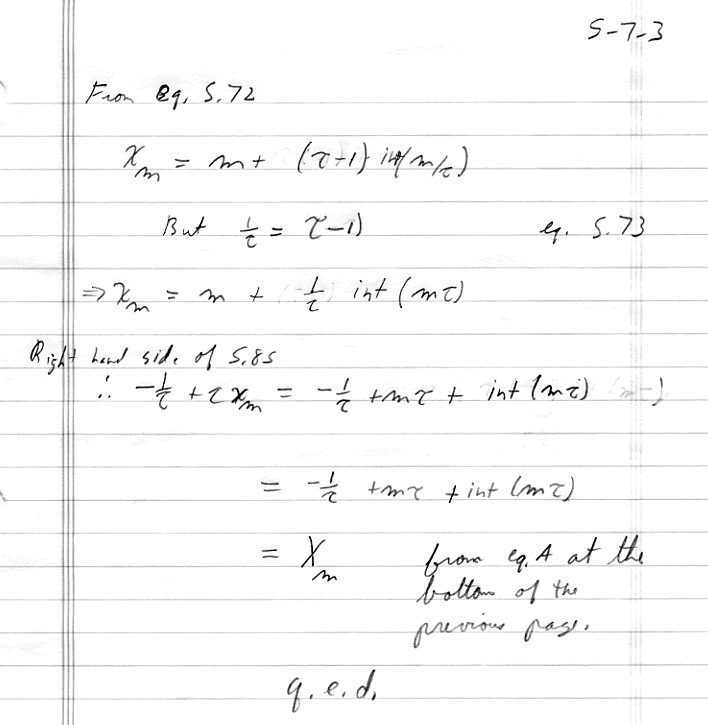 5-7-3
From eq. 5.72
x_m = m + (τ-1) int(m/τ)
But 1/τ = τ-1)   eq. 5.73
⇒ x_m = m + 1/τ int (mτ)
Right hand side of 5.85
∴ -1/τ + τ x_m = -1/τ + mτ + int (mτ)
= -1/τ + mτ + int (mτ)
= X_m   from eq. A at the
bottom of the
previous page.
q.e.d.